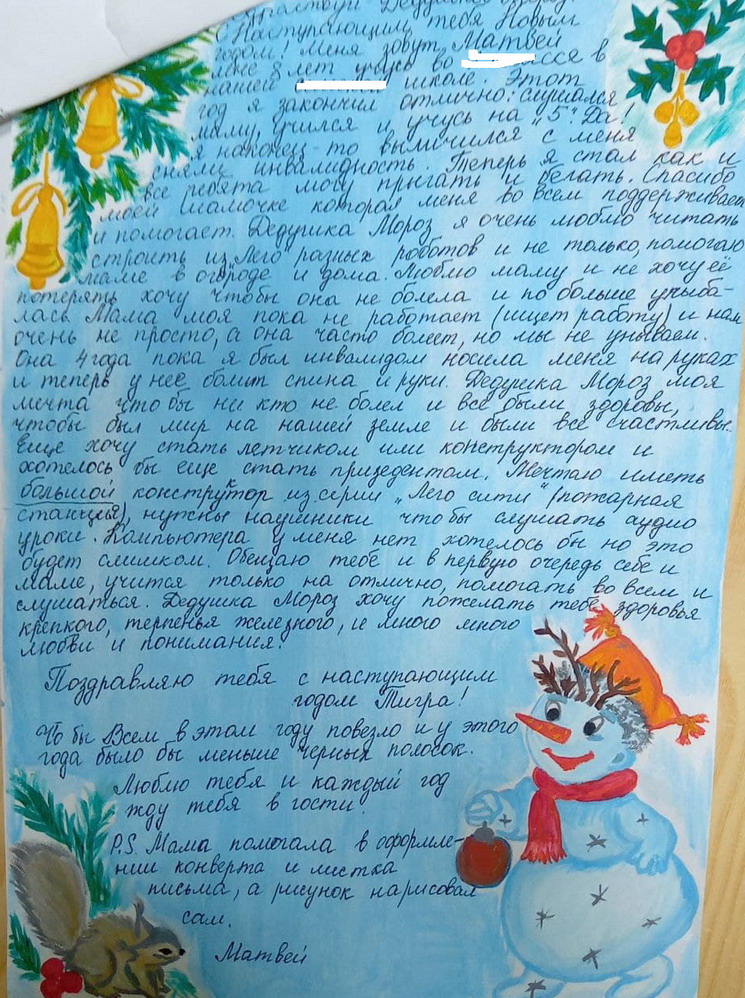 Здравствуй Дедушка Мороз!
С Наступающим тебя Новым
годом! Меня зовут Матвей
мне 8 лет учусь во классе в
нашей школе. Этот
год я закончил отлично: слушался
маму, учился и учусь на „5". Да!
я наконец-то вылечился с меня
сняли инвалидность. Теперь я стал как и
все ребята могу прыгать и бегать. Спасибо
моей мамочке которая меня во всем поддерживает
и помогает. Дедушка Мороз я очень люблю читать
строить из „Лего" разных роботов и не только, помогаю
маме в огороде и дома. Люблю маму и не хочу её
потерять хочу чтобы она не болела и по больше улыба-
лась. Мама моя пока не работает (ищет работу) и нам
очень не просто, а она часто болеет, но мы не унываем.
Она 4 года пока я был инвалидом носила меня на руках
и теперь у неё болит спина и руки. Дедушка Мороз моя
мечта что бы ни кто не болел и все были здоровы,
чтобы был мир на нашей земле и были все счастливы.
Еще хочу стать летчиком или конструктором и
хотелось бы еще стать призедентом. Мечтаю иметь
большой конструктор из серии „Лего сити" (пожарная
станция), нужны наушники что бы слушать аудио
уроки. Компьютера у меня нет хотелось бы но это
будет слишком. Обещаю тебе и в первую очередь себе и
маме, учится только на отлично, помогать во всем и
слушаться. Дедушка Мороз хочу пожелать тебе здоровья
крепкого, терпенья железного, и много много
любви и понимания!
Поздравляю тебя с наступающим
годом Тигра!
Что бы Всем в этом году повезло и у этого
года было бы меньше черных полосок.
Люблю тебя и каждый год
жду тебя в гости.
P.S. Мама помогала в оформле-
нии конверта и листка
письма, а рисунок нарисовал
сам.
Матвей